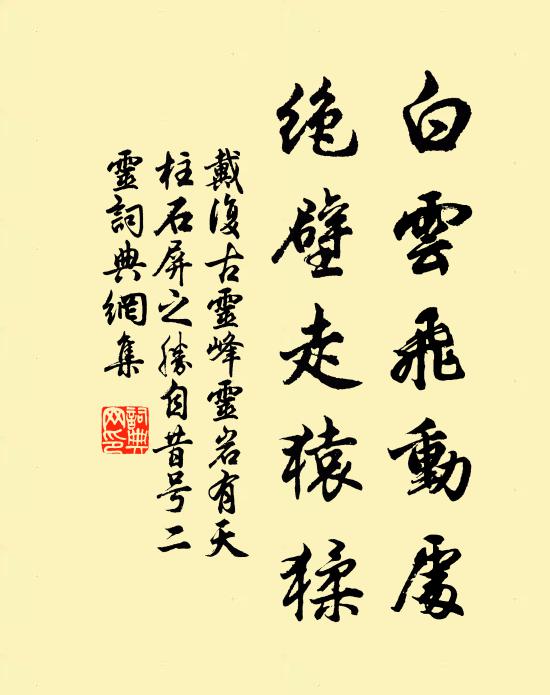 白雲飛動處
絶壁走猿猱
戴復古靈峰靈岩有天
柱石屏之勝自昔号二
靈詞典網集
詞典
网印